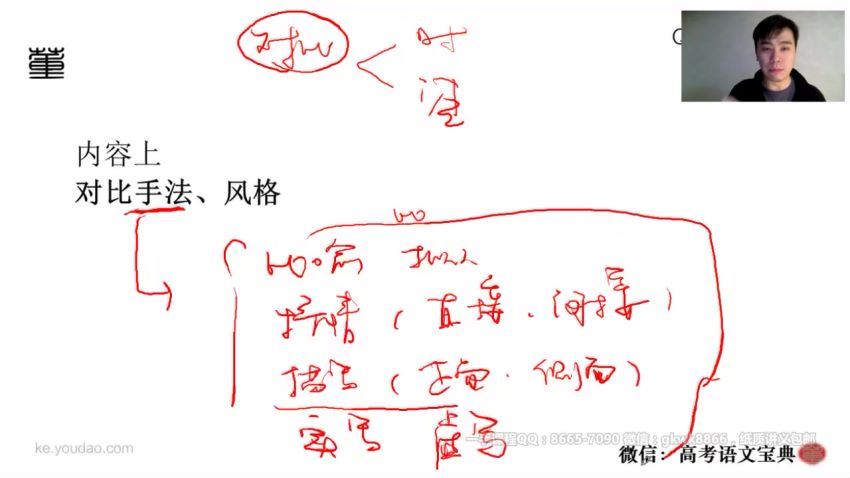 董
内容上
对比手法、风格
比
比喻 拟人
抒情（直接、间接）
描写（正面、侧面）
实写 虚写
ke.youdao.com
QQ：8665-7090 微信：gkwx8866，纸质讲义包邮
微信：高考语文宝典